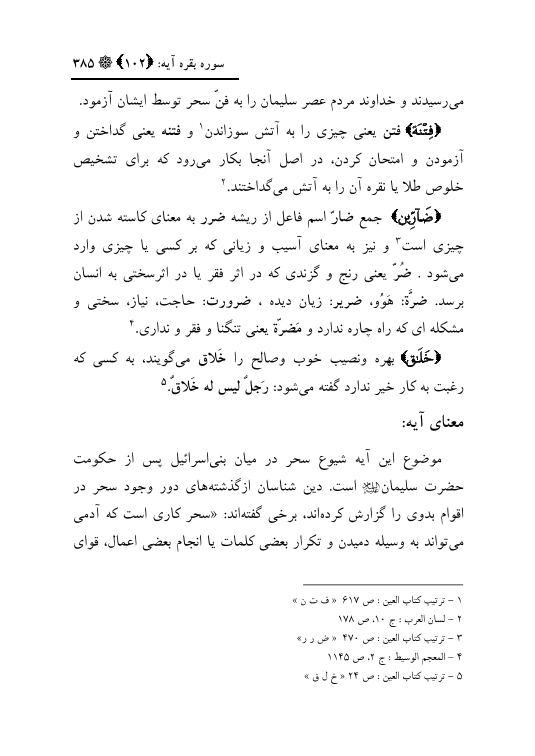 سوره بقره آیه: ﴿۱۰۲﴾ ۳۸۵
می‌رسیدند و خداوند مردم عصر سلیمان را به فنّ سحر توسط ایشان آزمود.
﴿فِتْنَة﴾ فتن یعنی چیزی را به آتش سوزاندن۱ و فتنه یعنی گداختن و
آزمودن و امتحان کردن، در اصل آنجا بکار می‌رود که برای تشخیص
خلوص طلا یا نقره آن را به آتش می‌گداختند.۲
﴿ضَآرِّین﴾ جمع ضارّ اسم فاعل از ریشه ضرر به معنای کاسته شدن از
چیزی است۳ و نیز به معنای آسیب و زیانی که بر کسی یا چیزی وارد
می‌شود . ضُرّ یعنی رنج و گزندی که در اثر فقر یا در اثرسختی به انسان
برسد. ضرَّة: هَوُو، ضریر: زیان دیده ، ضرورت: حاجت، نیاز، سختی و
مشکله ای که راه چاره ندارد و مَضرّة یعنی تنگنا و فقر و نداری.۴
﴿خَلَٰق﴾ بهره ونصیب خوب وصالح را خَلاق می‌گویند، به کسی که
رغبت به کار خیر ندارد گفته می‌شود: رَجلٌ لیس له خَلاقٌ.۵
معنای آیه:
موضوع این آیه شیوع سحر در میان بنی‌اسرائیل پس از حکومت
حضرت سلیمان است. دین شناسان ازگذشته‌های دور وجود سحر در
اقوام بدوی را گزارش کرده‌اند، برخی گفته‌اند: «سحر کاری است که آدمی
می‌تواند به وسیله دمیدن و تکرار بعضی کلمات یا انجام بعضی اعمال، قوای
۱ – ترتیب کتاب العین : ص ۶۱۷ « ف ت ن »
۲ – لسان العرب : ج ۱۰، ص ۱۷۸
۳ – ترتیب کتاب العین : ص ۴۷۰ « ض ر ر»
۴ – المعجم الوسیط : ج ۲، ص ۱۱۴۵
۵ – ترتیب کتاب العین : ص ۲۴ « خ ل ق »